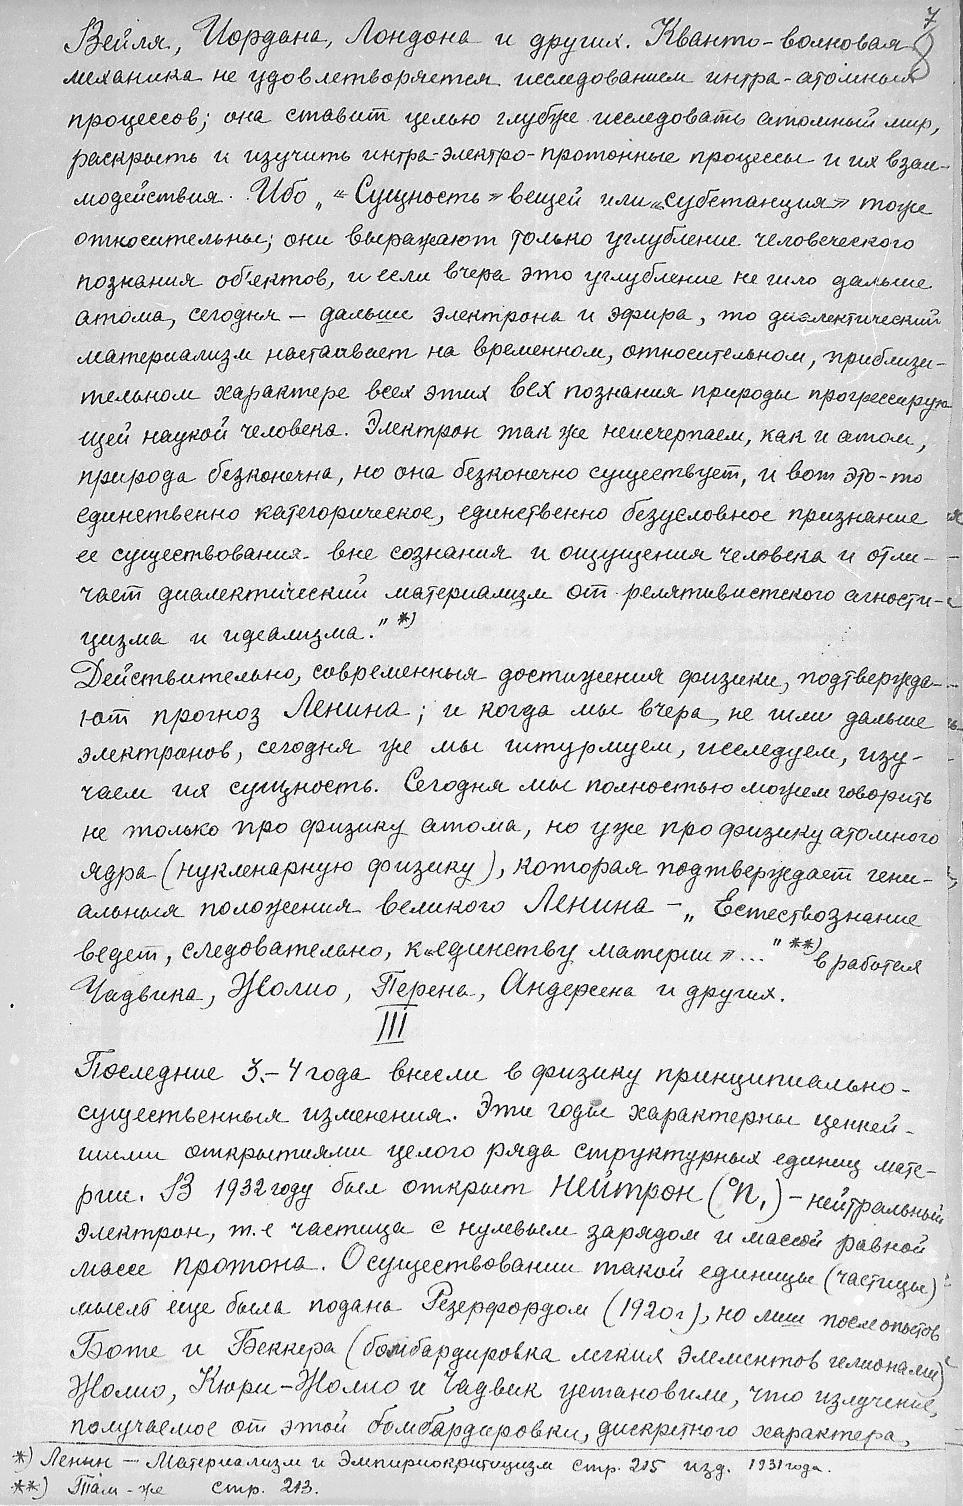 7
8
Вейля, Иордана, Лондона и других. Квантово-волновая
механика не удовлетворяется исследованием интра-атомных
процессов; она ставит целью глубже исследовать атомный мир,
раскрыть и изучить интра-электро-протонные процессы и их взаи-
модействия. Ибо „“Сущность” вещей или „субстанция” тоже
относительны; они выражают только углубление человеческого
познания об'ектов, и если вчера это углубление не шло дальше
атома, сегодня — дальше электрона и эфира, то диалектический
материализм настаивает на временном, относительном, приблизи-
тельном характере всех этих вех познания природы прогрессирую
щей наукой человека. Электрон так же неисчерпаем, как и атом,
природа безконечна, но она безконечно существует, и вот это-то
единственно категорическое, единственно безусловное признание
ее существования вне сознания и ощущения человека и отли-
чает диалектический материализм от релятивистского агности-
цизма и идеализма.” *)
Действительно, современныя достижения физики, подтвержда-
ют прогноз Ленина; и когда мы вчера не шли дальше
электронов, сегодня же мы штурмуем, исследуем, изу-
чаем их сущность. Сегодня мы полностью можем говорить
не только про физику атома, но уже про физику атомного
ядра (нуклеарную физику), которая подтверждает гени-
альныя положения великого Ленина — „Естествознание
ведет, следовательно, к „единству материи”...” **) в работах
Чадвика, Жолио, Перена, Андерсена и других.
III
Последние 3-4 года внесли в физику принципиально-
существенныя изменения. Эти годы характерны ценней-
шими открытиями целого ряда структурных единиц мате-
рии. В 1932 году был открыт нейтрон (⁰n₁) — нейтральный
электрон, т.е частица с нулевым зарядом и массой равной
массе протона. О существовании такой единицы (частицы)
мысль еще была подана Резерфордом (1920г), но лиш после опытов
Боте и Беккера (бомбардировка легких элементов гелионами)
Жолио, Кюри-Жолио и Чадвик установили, что излучение,
получаемое от этой бомбардировки, дискретного характера,
*) Ленин — Материализм и Эмпириокритицизм стр. 215 изд. 1931 года.
**) Там-же стр. 213.